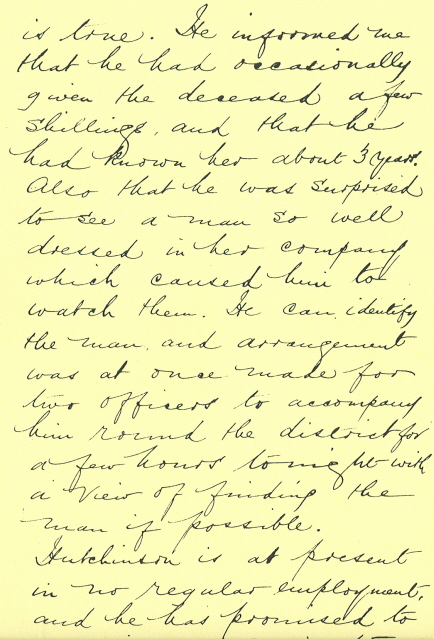 is true. He informed me
that he had occasionally
given the deceased a few
shillings, and that he
had known her about 3 years.
Also that he was surprised
to see a man so well
dressed in her company
which caused him to
watch them. He can identify
the man, and arrangement
was at once made for
two officers to accompany
him round the district for
a few hours tonight with
a view of finding the
man if possible.
Hutchinson is at present
in no regular employment,
and he has promised to